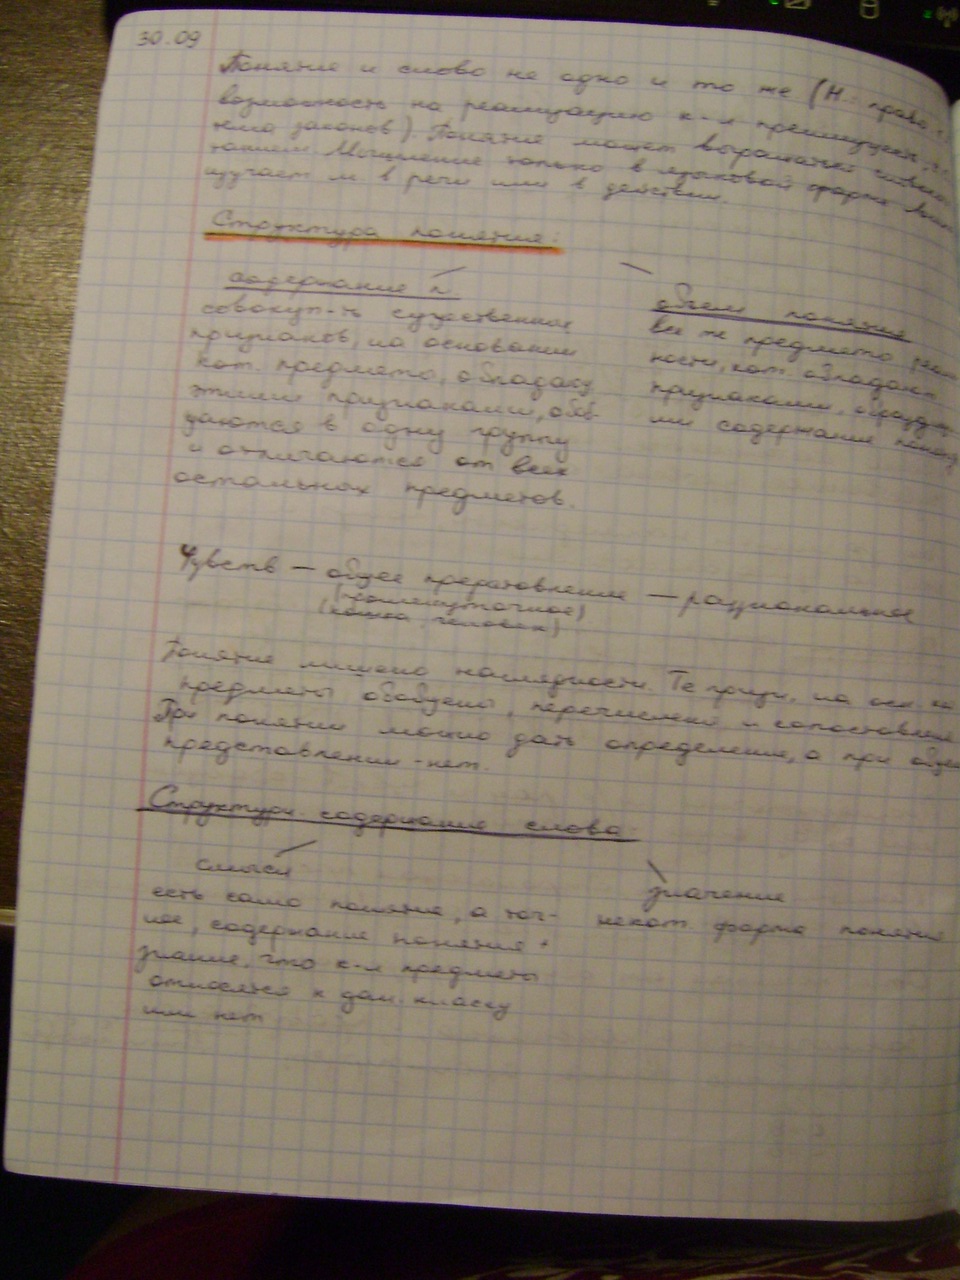 30.09
Понятие и слово не одно и то же (Н: право -
возможность на реализацию к-л преимуществ,
законов). Понятие может выражаться
Мышление только в языковой форме.
изучает м. в речи или в действии.
Структура понятия:
содержание п.
совокуп-ть существенных
признаков, на основании
кот. предметы, обладающ
этими признаками, объе-
даются в одну группу
и отличаются от всех
остальных предметов.
объем понятия
все те предметы
ности, кот. обладают
признаками, образующ
ми содержание понят
Чувств — общее представление — рациональное
(промежуточное)
(кошка, человек)
Понятие лишено наглядности. Те призн. на осн.
предметы обобщены, перечислены и сопоставлен
При понятии можно дать определение, а при общ
представлении - нет.
Структура содержание слова:
смысл
есть само понятие, а точ-
нее, содержание понятия +
знание, что к-л предметы
относятся к дан. классу
или нет
значение
некот. форма понятия